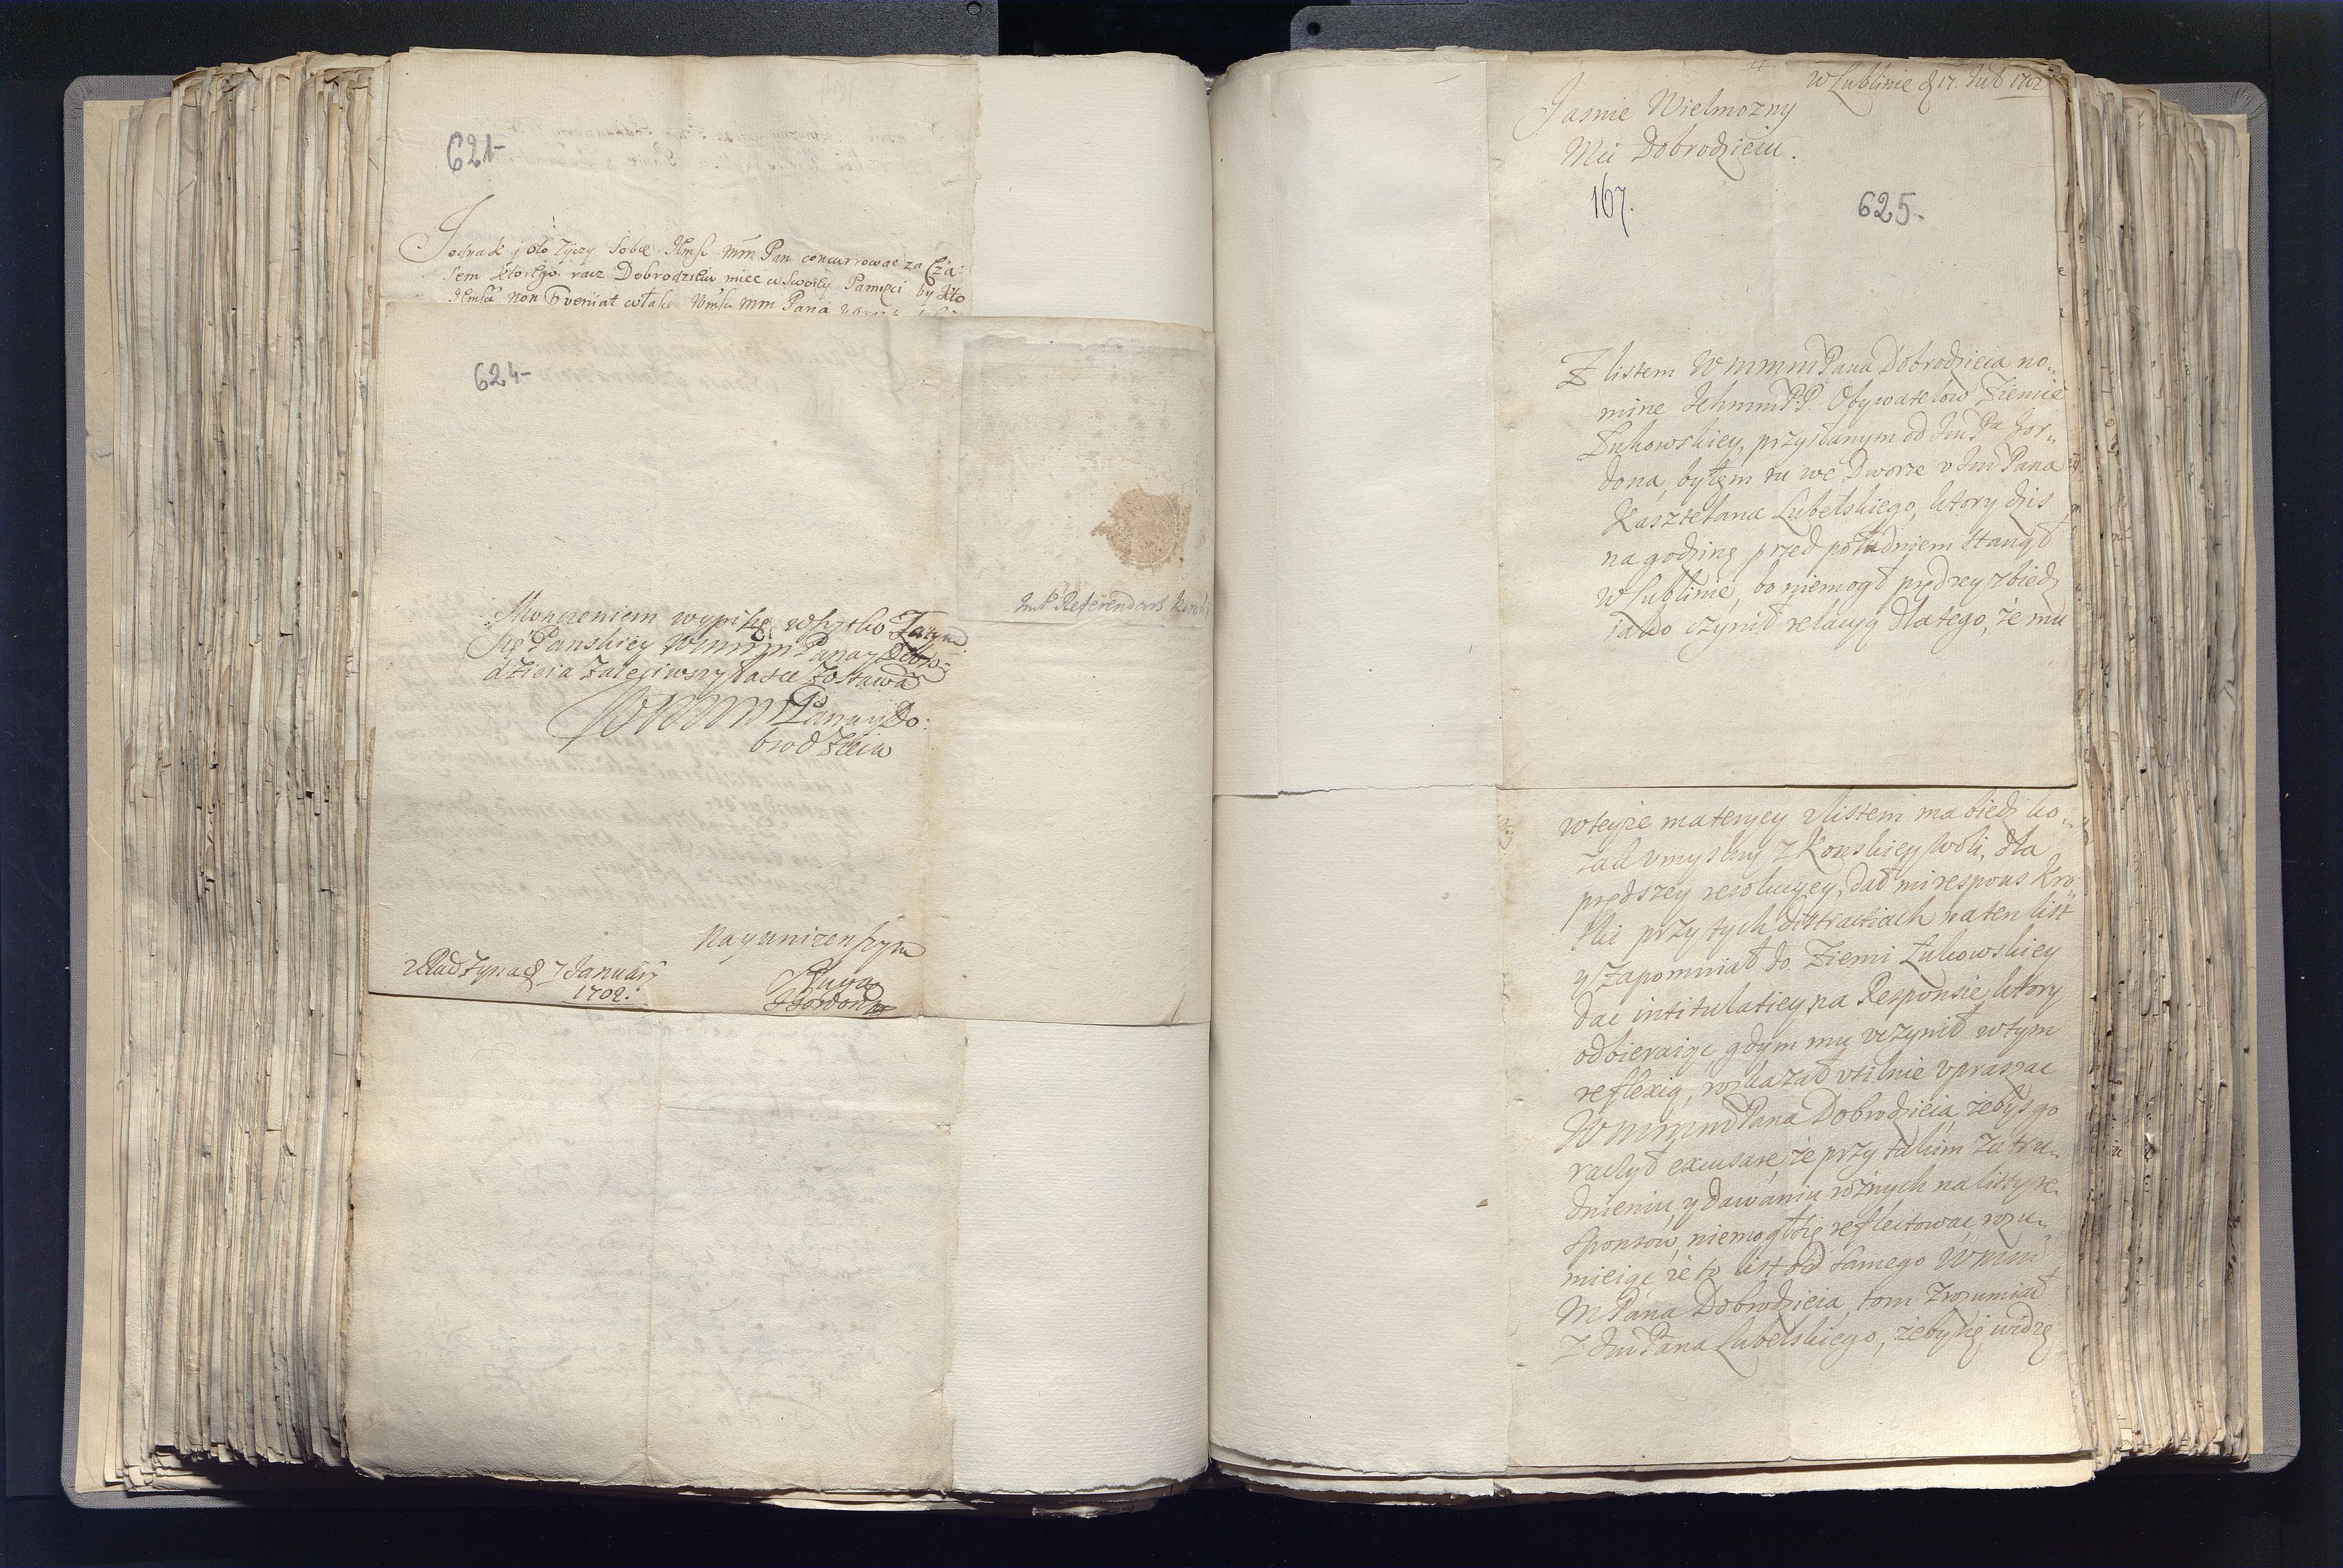 621-
Jednak i oto zyczy sobie Jmsc mm Pan concurrowac za Cza:
sem ktorego racz Dobrodzieiu miec w swoiey Pamięci by kto
Jmsci non pveniat w łasce Wmsci mm Pana
624-
Skonczeniem wypiszę wszytko Teraz
się Panskiey Wmmm Pana y Dobro:
dzieia zaleciwszy łasce zostawam
Wmmm Pana y Do:
brodzieia
Nayunizenszym
Sługą
Hordon
z Radzynia d 7 January
1702.
Jmp Referendarz
W Lublinie d 17. Jul 1702
Jasnie Wielmozny
Mci Dobrodzieiu.
167.
625-
Z listem WmmmPana Dobrodzieia no„
mine Ichmm PP. Obywatelow Ziemie
Łukowskiey, przysłanym od Jmć Pa Hor„
dona, byłem tu we Dworze v Jmć Pana
Kasztelana Lubelskiego, ktory dzis
na godzinę przed południem stanął
w Lublinie, bo niemogł prędzey zbiedz
iakdo czynił relacyą dlatego, że mu
wteyże materyey z listem ma biedz ko„
zak vmyslny z Konskiey woli, dla
prędszey resolucyey, dał mi respons kro„
tki przy tych distractiach na ten list
y zapomniał do Ziemi Łukowskiey
dac intitulatiey na Responsie, ktory
odbieraiąc gdym mu vczynił wtym
reflexią, roskazał vsilnie vpraszac
Wmmm Pana Dobrodzieia, żebys go
raczył excusare, że przy takim zatru„
dnieniu, y dawaniu rożnych na listy re„
sponsow, niemogł się reflectowac, rozu„
mieiąc że to list od samego Wmm
MPana Dobrodzieia, tom zrozumiał
z Jmć Pana Lubelskiego, żeby się widzę